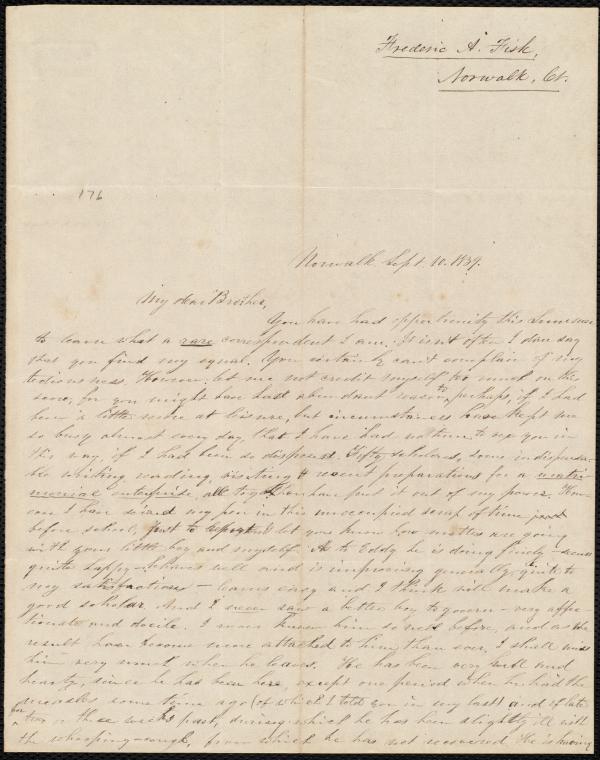 Frederic A. Fisk,
Norwalk, Ct.
176
Norwalk Sept. 10. 1839.
My dear Brother,
You have had opportunity this Summer
to learn what a rare correspondent I am. It isn't often I dare say
that you find my equal. You certainly can't complain of my
However let me not credit myself too much on this
score, for you might have had abundant reason to perhaps, if I had
been a little more at leisure, but circumstances have kept me
so busy almost every day, that I have had no time to vex you in
this way, if I had been so disposed. Fifty scholars, some indispensa-
ble writing, reading, visiting & recent preparations for a matri-
monial enterprise, all together have put it out of my power. How-
ever I have seized my pen in this unoccupied scrap of time just
before school, just to let you know how matters are going
with your little boy and myself. As to Eddy he is doing finely - seems
quite happy - behaves well and is improving generally, quite to
my satisfaction - learns easy and I think will make a
good scholar. And I never saw a better boy to govern - very affec-
tionate and docile. I never knew him so well before, and as the
result have become more attached to him than ever, I shall miss
him very much when he leaves. He has been very well and
hearty, since he has been here, except one period when he had the
measles some time ago (of which I told you in my last) and of late
for two or three weeks past, during which he has been slightly ill with
the whooping-cough, from which he has not recovered. He is having